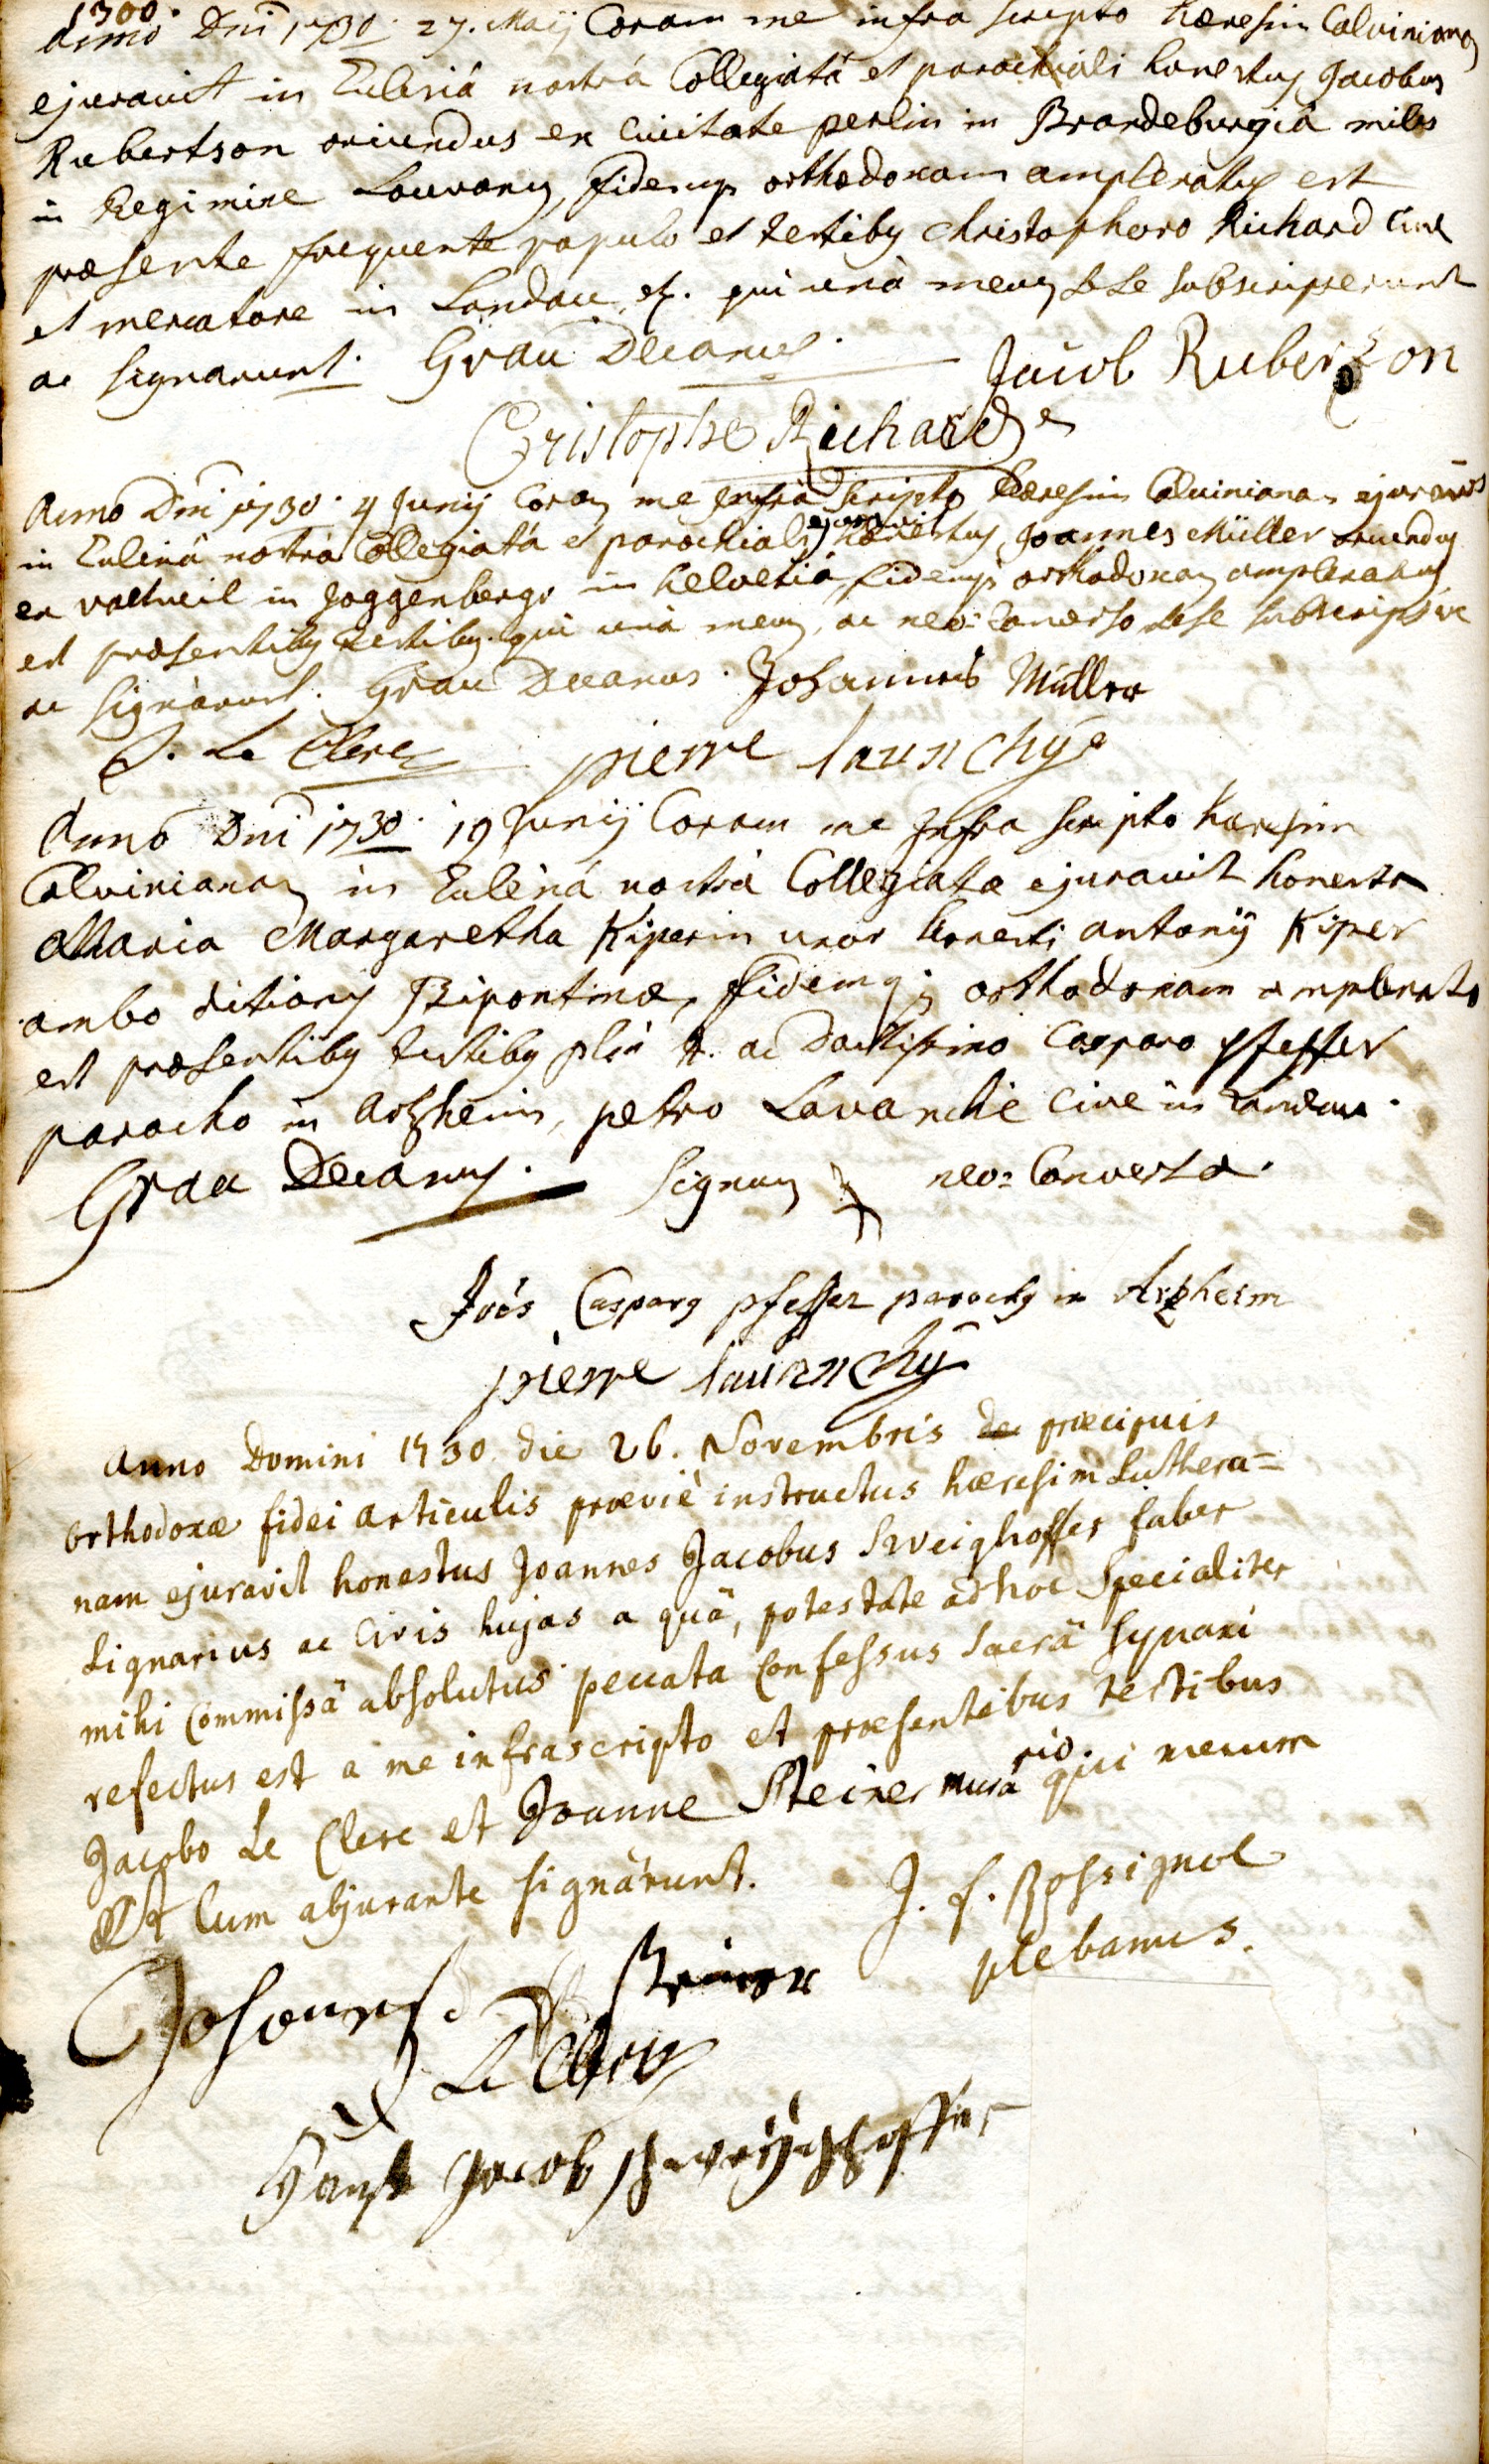 1300.
Anno Dnī 1730. 27. Maij Coram me infra scripto hæresin Calvinianā
ejuravit in Ecclesiâ nostrâ Collegiatâ et parochiali honestus Jacobus
Rubertson oriundus ex civitate perlin in Brandeburgiâ miles
in Regimine fidemq orthodoxam amplexatus est
præsente frequente populo et testibus Christophoro Richard Cive
et mercatore in Landau, et. qui unà mecum sese subscripserunt
ac signarunt. Grau Decanus. Jacob Ruberzon
Cristophe Richard
Anno Dnī 1730. 4 Junij Coram me Infra scripto hæresin Calvinianam
in Ecclesiâ nostrâ Collegiatâ et parochiali ejuravit honestus Joannes Müller oriundus
ex in Joggenbergo in helvetiâ, fidemq orthodoxam amplexatus
est præsentibus testibus qui unà mecum, ac neo-Converso sese
ac signârunt. Grau Decanus. Johannes Müller
J. Le Clerc pierre launchy
Anno Dnī 1730. 19 Junij Coram me Infra scripto hæresin
Calvinianam in Ecclesiâ nostrâ Collegiatâ ejuravit honesta
Maria Margaretha Kiperin uxor honesti antonij Kiper
ambo ditionis Bipontinæ, fidemq; orthodoxam amplexata
est præsentibus testibus ac Doctissimo Casparo pfeffer
parocho in Arzheim, petro Lavanchie Cive in Landau.
Grau Decanus. Signum neo-Conversæ.
Caspars pfeffer parochus in Arzheim
pierre launchy
Anno Domini 1730 die 26. Novembris de præcipuis
orthodoxæ fidei articulis præviè instructus hæresim Luthera=
nam ejuravit honestus Joannes Jacobus Sweighoffer faber
Lignarius ac Civis hujas a quâ, potestate ad hoc specialiter
mihi Commissâ absolutus peccata Confessus Sacrâ Synaxi
refectus est a me infrascripto et præsentibus testibus
Jacobo Le Clerc et Joanne Steiner murario qui mecum
Et Cum abjurante signârunt. J. f. Rossignol
plebanus.
Johannes Steiner
J Le Clerc
Hans Jacob schweÿghoffer